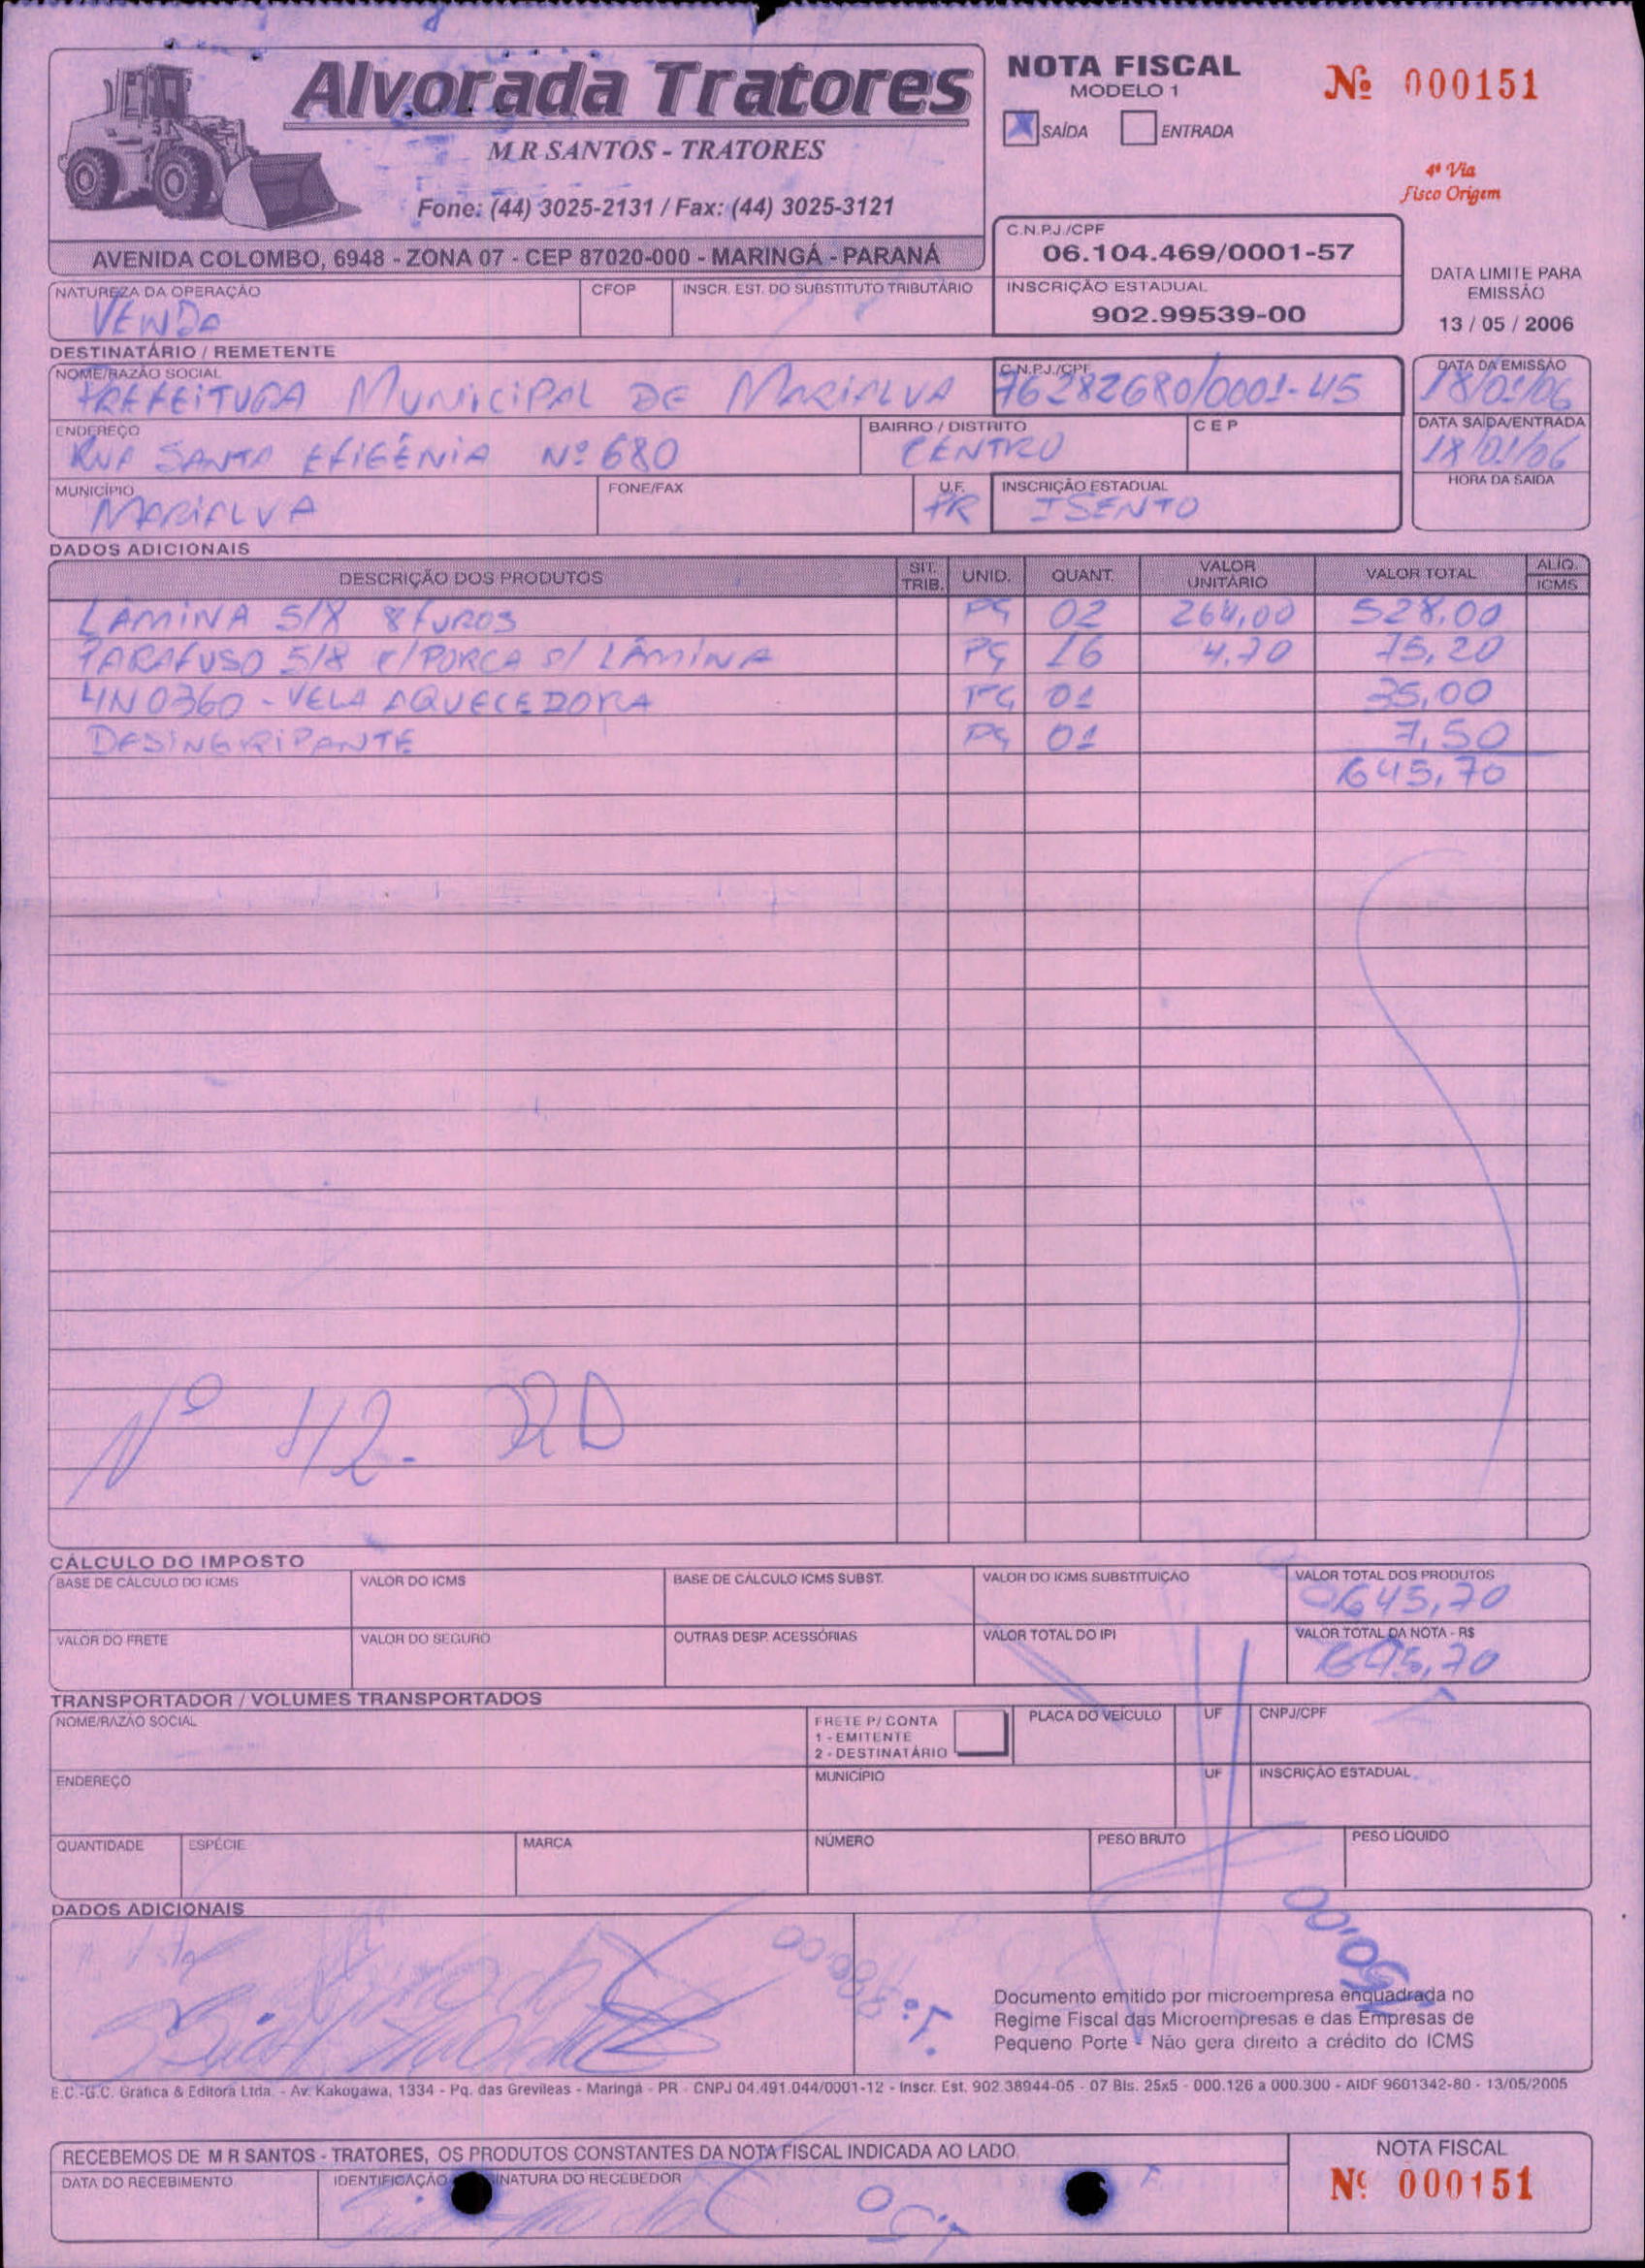 Alvorada Tratores
M R SANTOS - TRATORES
Fone: (44) 3025-2131 / Fax: (44) 3025-3121
AVENIDA COLOMBO, 6948 - ZONA 07 - CEP 87020-000 - MARINGÁ - PARANÁ
NOTA FISCAL
MODELO 1
SAÍDA ENTRADA
Nº 000151
4ª Via
Fisco Origem
C.N.P.J./CPF
06.104.469/0001-57
INSCRIÇÃO ESTADUAL
902.99539-00
DATA LIMITE PARA
EMISSÃO
13 / 05 / 2006
NATUREZA DA OPERAÇÃO CFOP INSCR. EST. DO SUBSTITUTO TRIBUTÁRIO
VENDA
DESTINATÁRIO / REMETENTE
NOME/RAZÃO SOCIAL C.N.P.J./CPF DATA DA EMISSÃO
PREFEITURA MUNICIPAL DE MARIALVA 76282680/0001-45 18/01/06
ENDEREÇO BAIRRO / DISTRITO CEP DATA SAÍDA/ENTRADA
RUA SANTA EFIGÊNIA Nº 680 CENTRO 18/01/06
MUNICÍPIO FONE/FAX U.F. INSCRIÇÃO ESTADUAL HORA DA SAIDA
MARIALVA PR ISENTO
DADOS ADICIONAIS
DESCRIÇÃO DOS PRODUTOS SIT. TRIB. UNID. QUANT. VALOR UNITÁRIO VALOR TOTAL ALIQ. ICMS
LAMINA 5/8 8 FUROS PÇ 02 264,00 528,00
PARAFUSO 5/8 C/PORCA P/ LÂMINA PÇ 16 4,70 75,20
4N0360 - VELA AQUECEDORA PÇ 01 35,00
DESINGRIPANTE PÇ 01 7,50
645,70
Nº 112-
CÁLCULO DO IMPOSTO
BASE DE CÁLCULO DO ICMS VALOR DO ICMS BASE DE CÁLCULO ICMS SUBST. VALOR DO ICMS SUBSTITUIÇÃO VALOR TOTAL DOS PRODUTOS
645,70
VALOR DO FRETE VALOR DO SEGURO OUTRAS DESP. ACESSÓRIAS VALOR TOTAL DO IPI VALOR TOTAL DA NOTA - R$
645,70
TRANSPORTADOR / VOLUMES TRANSPORTADOS
NOME/RAZÃO SOCIAL FRETE P/ CONTA PLACA DO VEÍCULO UF CNPJ/CPF
1 - EMITENTE
2 - DESTINATÁRIO
ENDEREÇO MUNICÍPIO UF INSCRIÇÃO ESTADUAL
QUANTIDADE ESPÉCIE MARCA NÚMERO PESO BRUTO PESO LÍQUIDO
DADOS ADICIONAIS
Documento emitido por microempresa enquadrada no
Regime Fiscal das Microempresas e das Empresas de
Pequeno Porte - Não gera direito a crédito do ICMS
E.C.-G.C. Gráfica & Editora Ltda. - Av. Kakogawa, 1334 - Pq. das Grevíleas - Maringá - PR - CNPJ 04.491.044/0001-12 - Inscr. Est. 902.38944-05 - 07 Bls. 25x5 - 000.126 a 000.300 - AIDF 9601342-80 - 13/05/2005
RECEBEMOS DE M R SANTOS - TRATORES, OS PRODUTOS CONSTANTES DA NOTA FISCAL INDICADA AO LADO.
DATA DO RECEBIMENTO IDENTIFICAÇÃO NATURA DO RECEBEDOR
NOTA FISCAL
Nº 000151